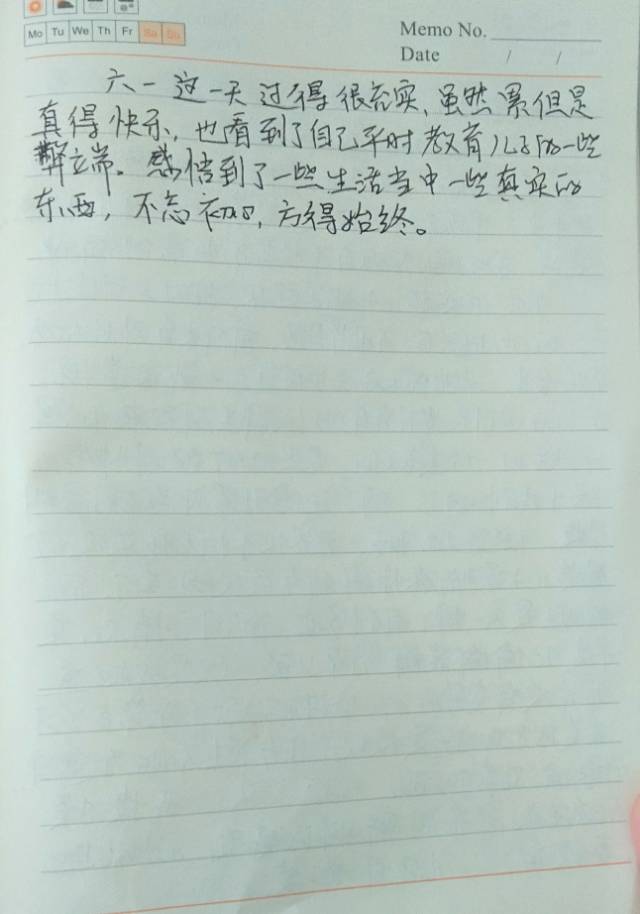 Mo Tu We Th Fr Sa Su
Memo No.
Date / /
六一这一天过得很充实,虽然累但是
真得快乐,也看到了自己平时教育儿子的一些
弊端。感悟到了一些生活当中一些真实的
东西,不忘初心,方得始终。